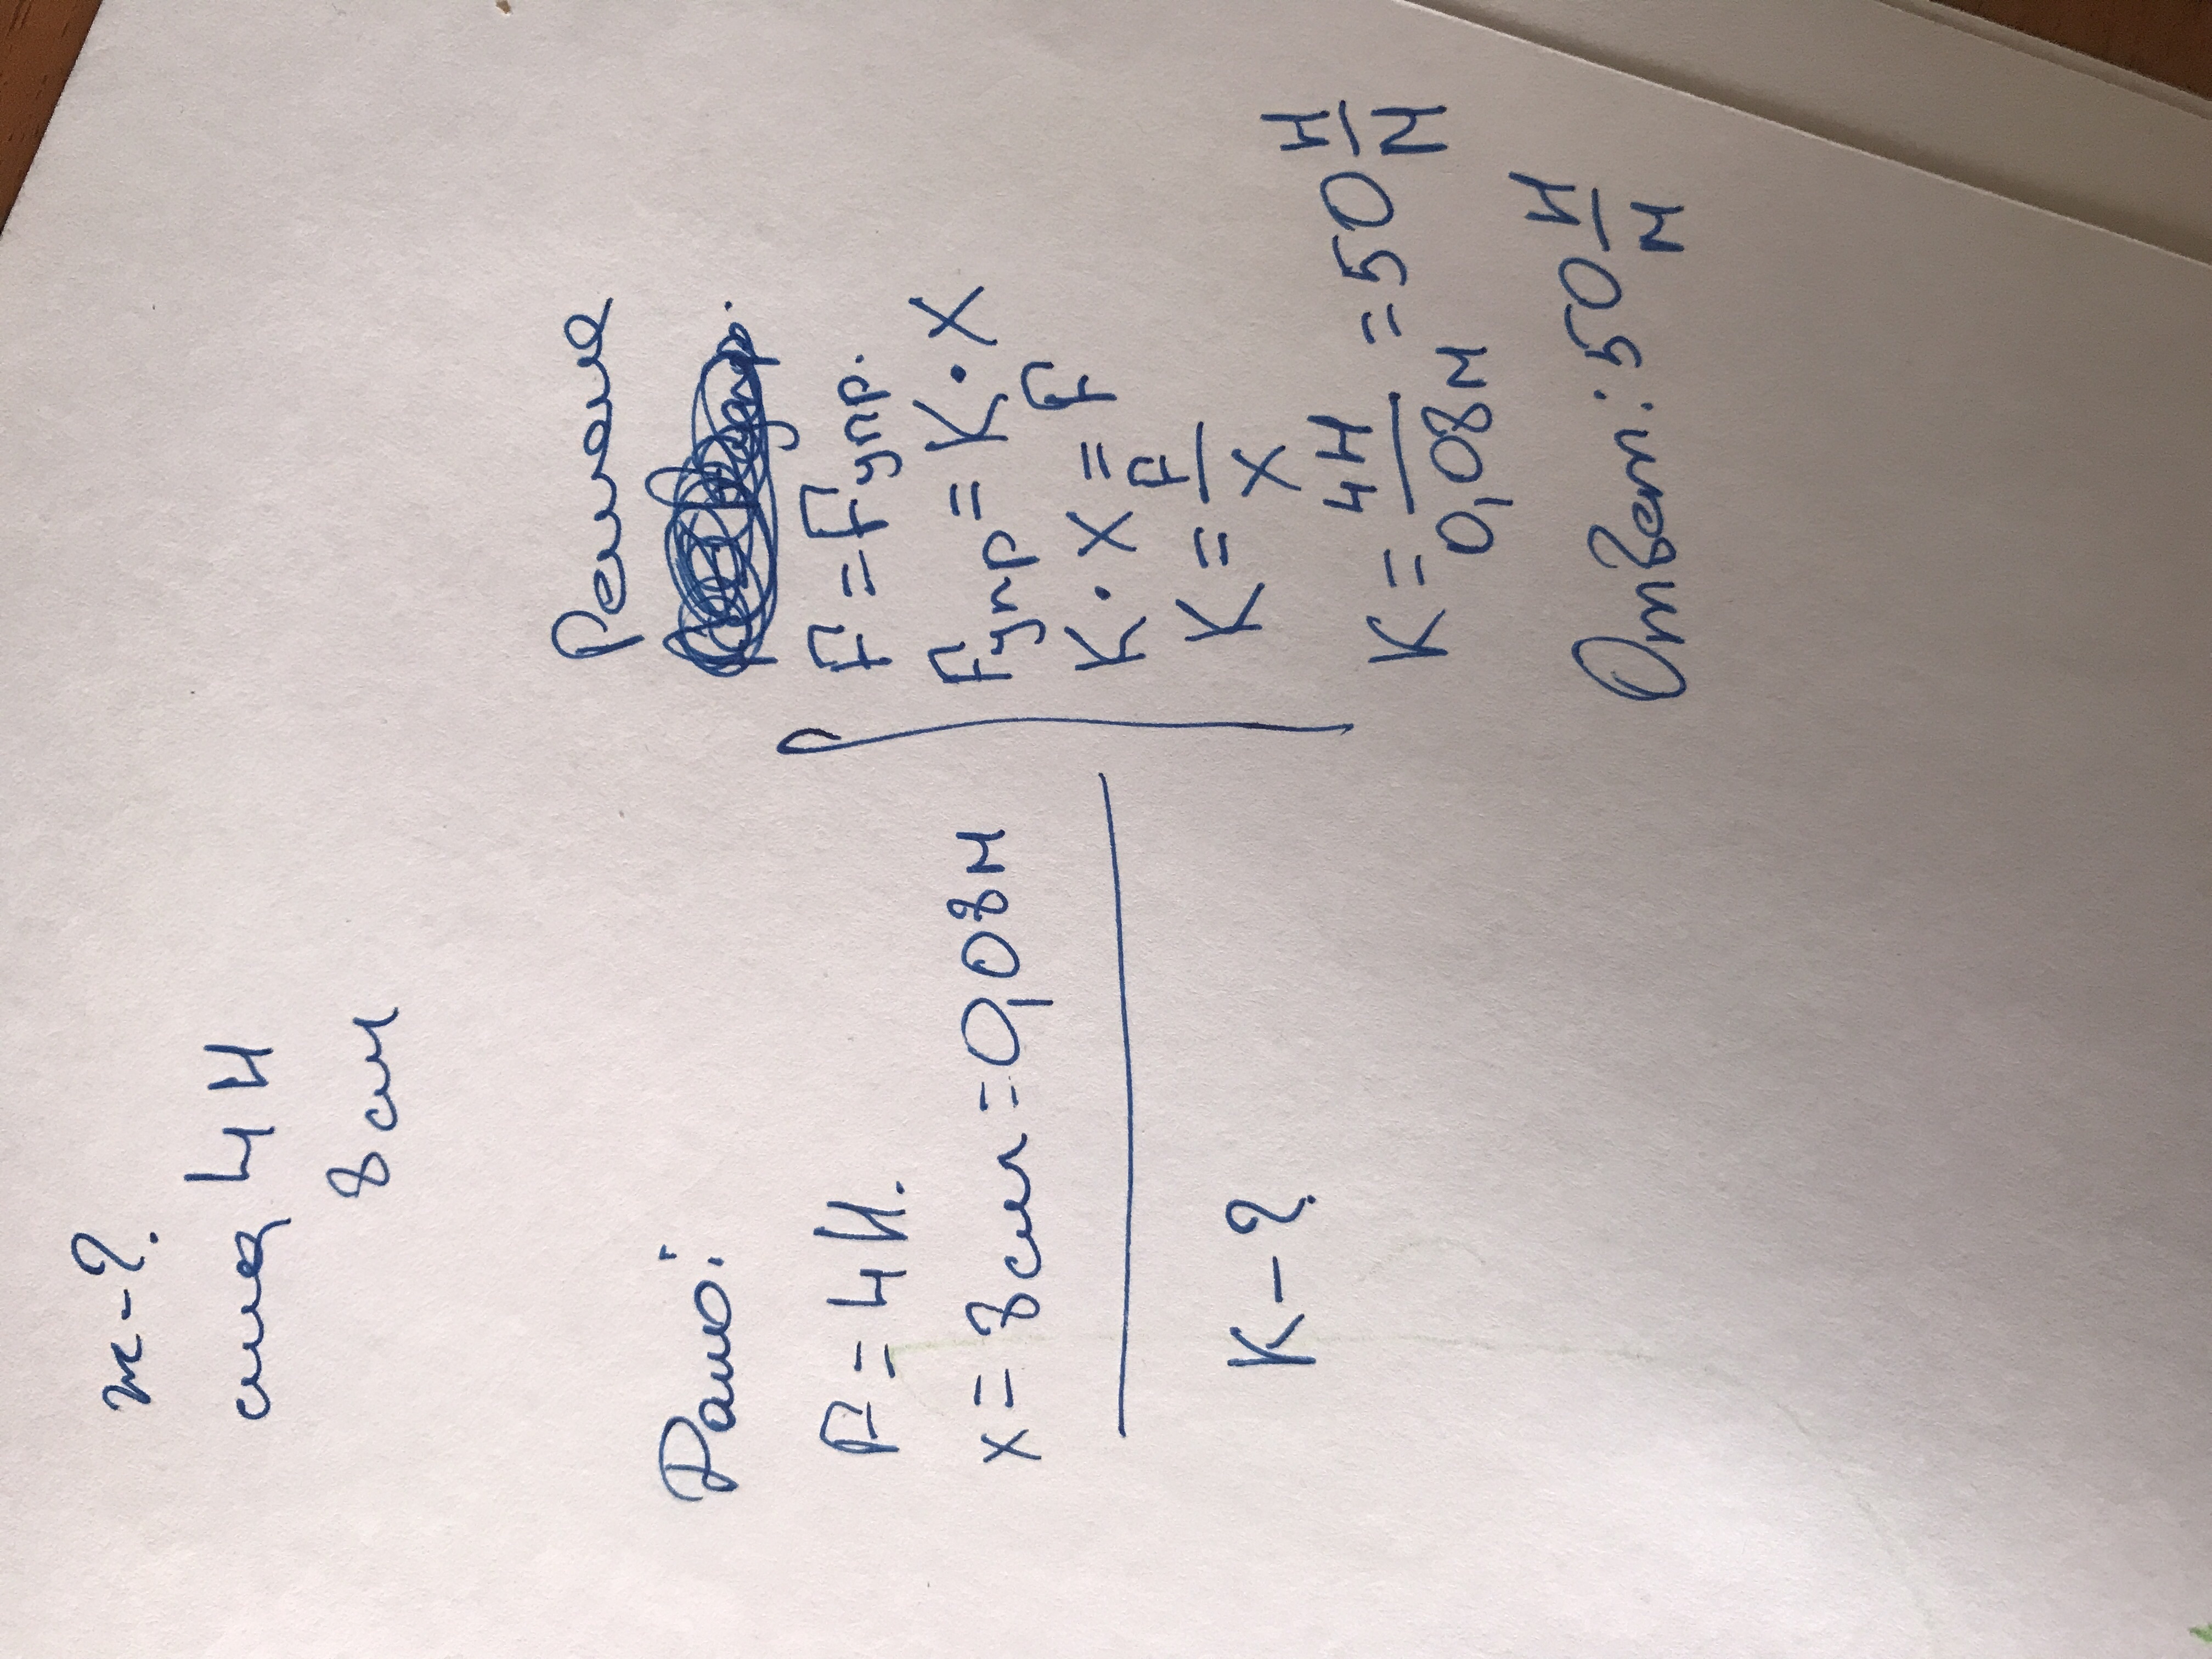 ж-?
сила 4 Н
8 см
Дано:
F = 4 Н.
x = 8 см = 0,08 м
K - ?
Решение
F = Fупр.
Fупр = K · X
K · X = F
K = F/X
K = 4Н/0,08м = 50 Н/м
Ответ: 50 Н/м